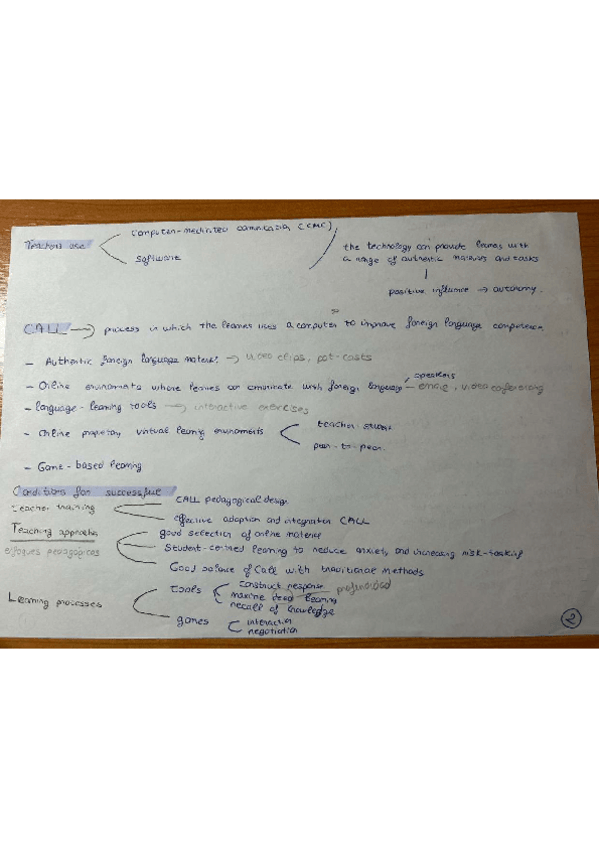 Teachers use
computer-mediated comunication (CMC)
software
the technology can provide learners with
a range of authentic materials and tasks
positive influence → autonomy.
CALL → process in which the learnes uses a computer to improve foreign language
- Authentic foreign language material → video clips, pot-casts
- Online enviroments where learnes can comunicate with foreign language speakers - email, video conferencing
- language-learning tools → interactive exercises
- Online propietary virtual learning enviroments
teacher-student
peer-to-peer
- Game-based learning
Conditions for successfull
teacher training
CALL pedagogical design
effective adoption and integration CALL
Teaching approaches
enfoques pedagógicos
good selection of online material
Student-centred learning to reduce anxiety, and increasing risk-taking
Good balance of Call with traditional methods
Learning processes
tools
construct response
deep learning profundidad
recall of knowledge
games
interaction
negotiation
2